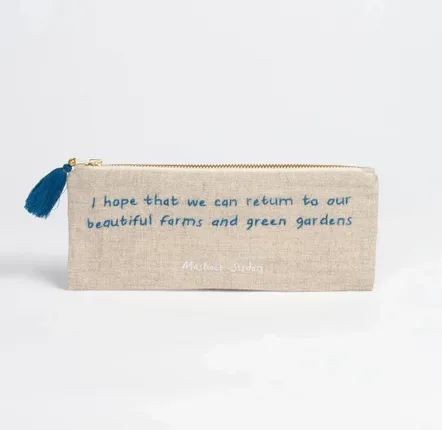 I hope that we can return to our
beautiful farms and green gardens
Sudan